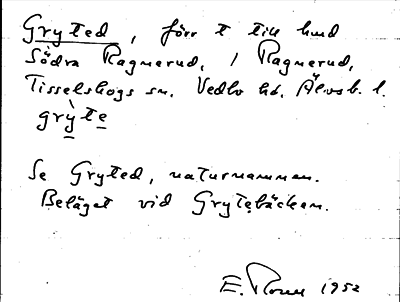 Gryted, förr t till hmd
Södra Ragnerud, 1 Ragnerud,
Tisselskogs sn. Vedbo hd. Älvsb. l.
grỳte
Se Gryted, naturnamnen.
Beläget vid Grytebäcken.
E. 1952